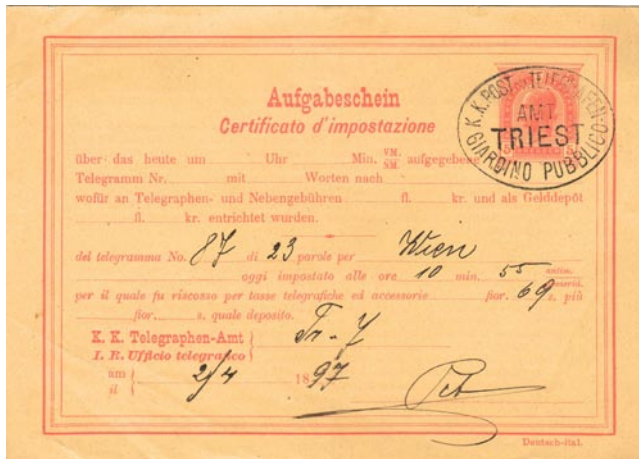 Aufgabeschein
Certificato d'impostazione
K. K. POST- TELEGRAFEN-
AMT
TRIEST
GIARDINO PUBBLICO
5
über das heute um Uhr Min. VM. NM. aufgegebene
Telegramm Nr. mit Worten nach
wofür an Telegraphen- und Nebengebühren fl. kr. und als Gelddepôt
fl. kr. entrichtet wurden.
del telegramma No. 87 di 23 parole per Wien
oggi impostato alle ore 10 min. 55 antim.
per il quale fu riscosso per tasse telegrafiche ed accessorie fior. 69 s. più
fior. s. quale deposito.
K. K. Telegraphen-Amt
I. R. Ufficio telegrafico
am
il 2/4 1897
Deutsch-ital.